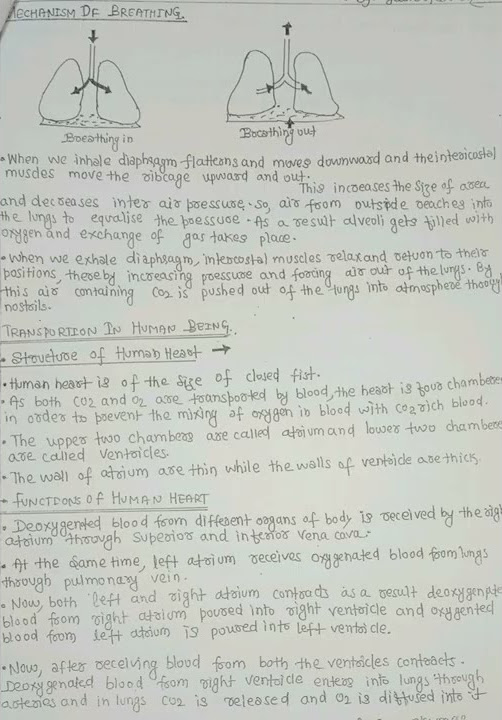 MECHANISM OF BREATHING.
Breathing in
Breathing out
• When we inhale diaphragm flattens and moves downward and the intercostal
muscles move the ribcage upward and out.
This increases the size of area
and decreases inter air pressure. So, air from outside reaches into
the lungs to equalise the pressure. As a result alveoli gets filled with
oxygen and exchange of gas takes place.
• When we exhale diaphragm, intercostal muscles relax and return to their
positions, thereby increasing pressure and forcing air out of the lungs. By
this air containing CO2 is pushed out of the lungs into atmosphere through
nostrils.
TRANSPORTION IN HUMAN BEING.
• Structure of Human Heart →
• Human heart is of the size of closed fist.
• As both CO2 and O2 are transported by blood, the heart is four chambere
in order to prevent the mixing of oxygen in blood with CO2 rich blood.
• The upper two chambers are called atrium and lower two chambers
are called Ventricles.
• The wall of atrium are thin while the walls of ventricle are thick.
→ FUNCTIONS OF HUMAN HEART
• Deoxygented blood from different organs of body is received by the right
atrium through Superior and interior vena cava.
• At the same time, left atrium receives oxygenated blood from lungs
through pulmonary vein.
• Now, both left and right atrium contracts as a result deoxygenate
blood from right atrium poured into right ventricle and oxygented
blood from left atrium is poured into left ventricle.
• Now, after receiving blood from both the ventricles contracts.
Deoxygenated blood from right ventricle enters into lungs through
arteries and in lungs CO2 is released and O2 is diffused into it